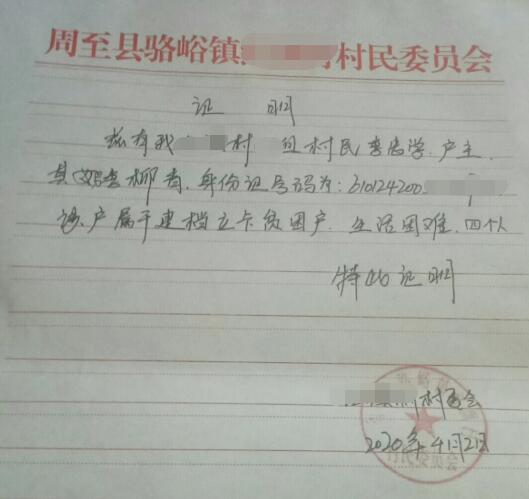 周至县骆峪镇 村民委员会
证 明
兹有我 村 组村民李忠学.户主.
其女李柳青.身份证号码为:610124200
该户属于建档立卡贫困户.生活困难.四个人
特此证明
村委会
2020年4月2日